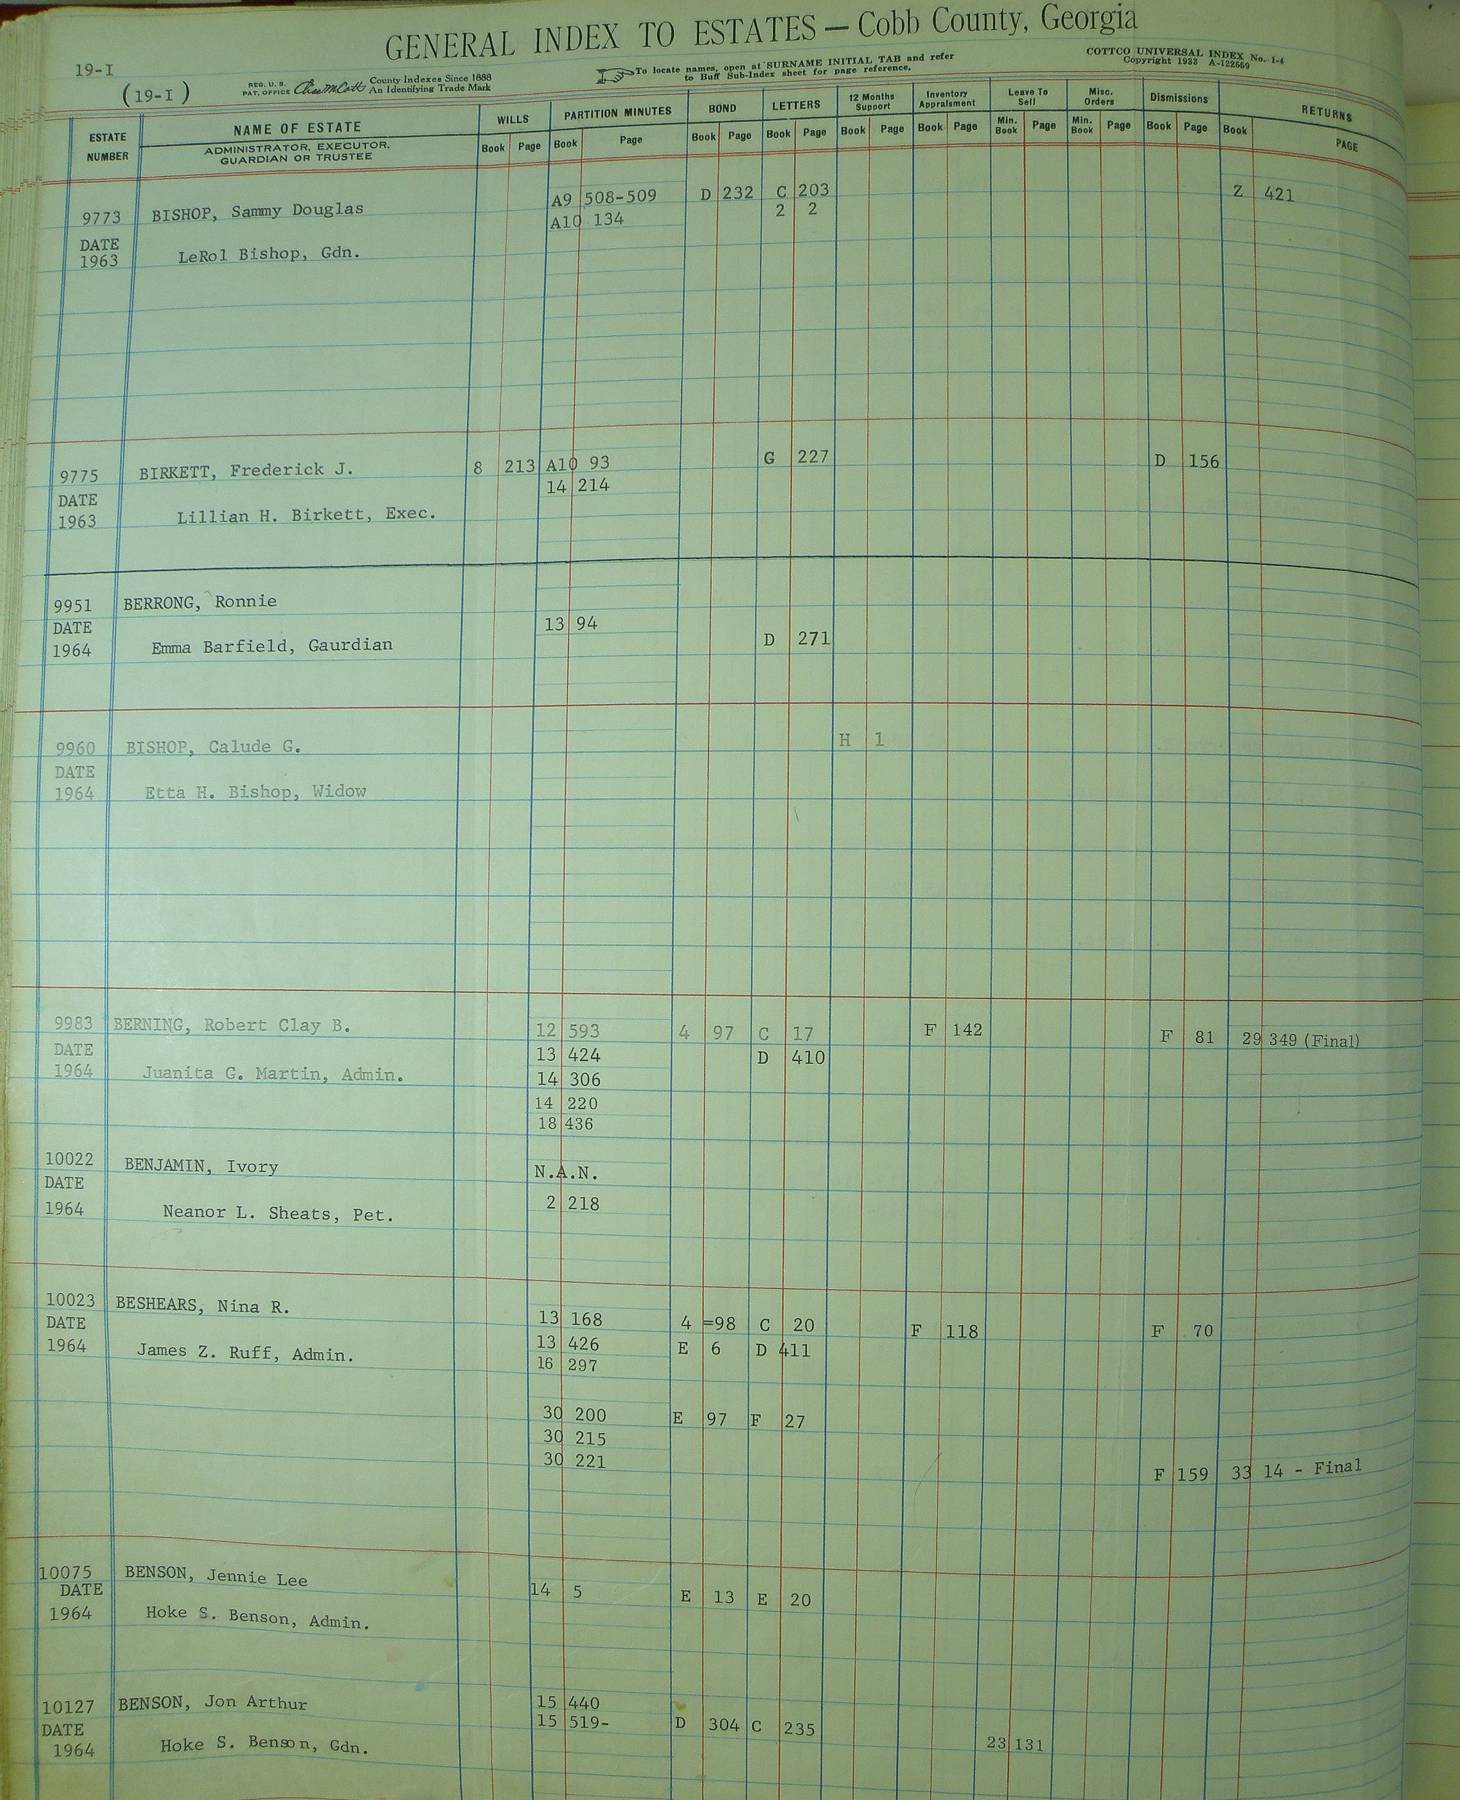 GENERAL INDEX TO ESTATES — Cobb County, Georgia
19-I
(19-I)
REG. U. S. PAT. OFFICE County Indexes Since 1888 An Identifying Trade Mark
To locate names, open at SURNAME INITIAL TAB and refer to Buff Sub-Index sheet for page reference.
COTTCO UNIVERSAL INDEX No. 1-4
Copyright 1933 A-122560
ESTATE NUMBER NAME OF ESTATE WILLS PARTITION MINUTES BOND LETTERS 12 Months Support Inventory Appraisment Leave To Sell Misc. Orders Dismissions RETURNS
ADMINISTRATOR, EXECUTOR, GUARDIAN OR TRUSTEE Book Page Book Page Book Page Book Page Book Page Book Page Min. Book Page Min. Book Page Book Page Book PAGE
9773 BISHOP, Sammy Douglas A9 508-509 D 232 C 203 Z 421
A10 134 2 2
DATE
1963 LeRol Bishop, Gdn.
9775 BIRKETT, Frederick J. 8 213 A10 93 G 227 D 156
DATE 14 214
1963 Lillian H. Birkett, Exec.
9951 BERRONG, Ronnie
DATE 13 94
1964 Emma Barfield, Gaurdian D 271
9960 BISHOP, Calude G. H 1
DATE
1964 Etta H. Bishop, Widow
9983 BERNING, Robert Clay B. 12 593 4 97 C 17 F 142 F 81 29 349 (Final)
DATE 13 424 D 410
1964 Juanita G. Martin, Admin. 14 306
14 220
18 436
10022 BENJAMIN, Ivory N.A.N.
DATE
1964 Neanor L. Sheats, Pet. 2 218
10023 BESHEARS, Nina R. 13 168 4 =98 C 20 F 118 F 70
DATE 13 426 E 6 D 411
1964 James Z. Ruff, Admin. 16 297
30 200 E 97 F 27
30 215
30 221 F 159 33 14 - Final
10075 BENSON, Jennie Lee 14 5 E 13 E 20
DATE
1964 Hoke S. Benson, Admin.
10127 BENSON, Jon Arthur 15 440
DATE 15 519- D 304 C 235
1964 Hoke S. Benson, Gdn. 23 131